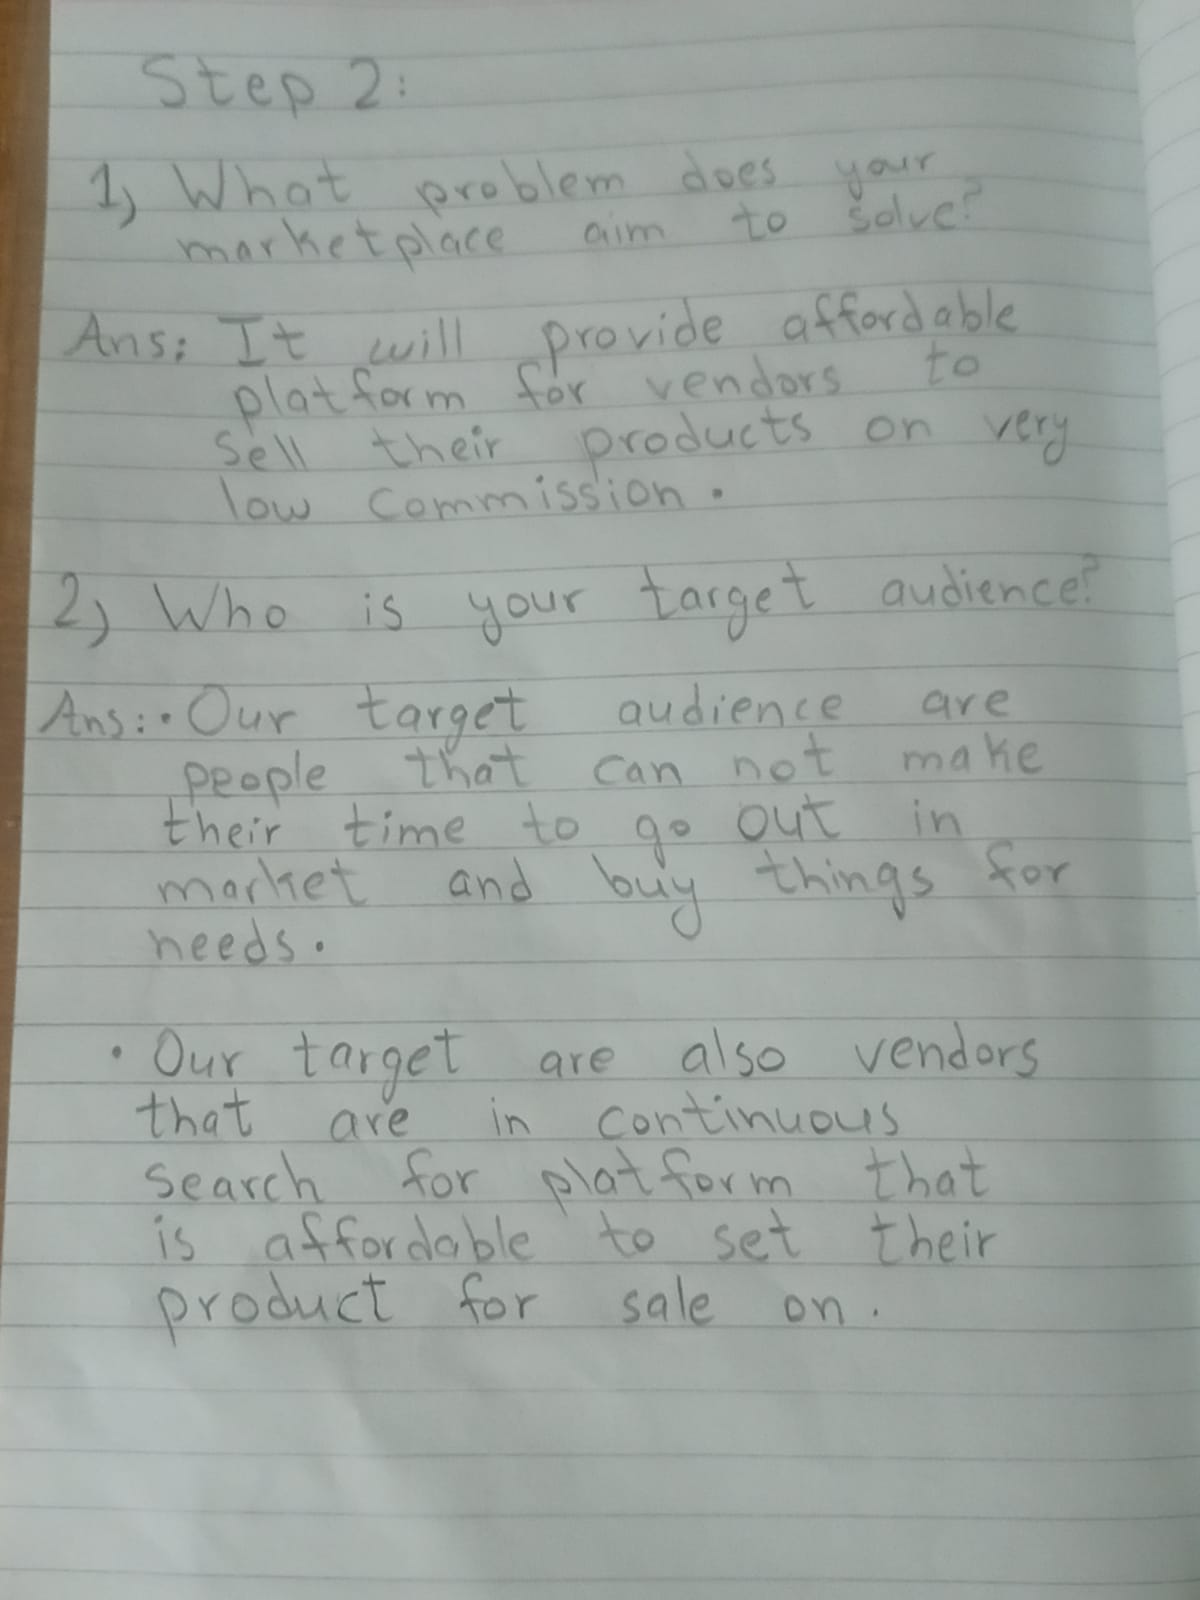 Step 2:
1) What problem does your
marketplace aim to solve?
Ans: It will provide affordable
platform for vendors to
sell their products on very
low commission.
2) Who is your target audience?
Ans: • Our target audience are
people that can not make
their time to go out in
market and buy things for
needs.
• Our target are also vendors
that are in continuous
search for platform that
is affordable to set their
product for sale on.